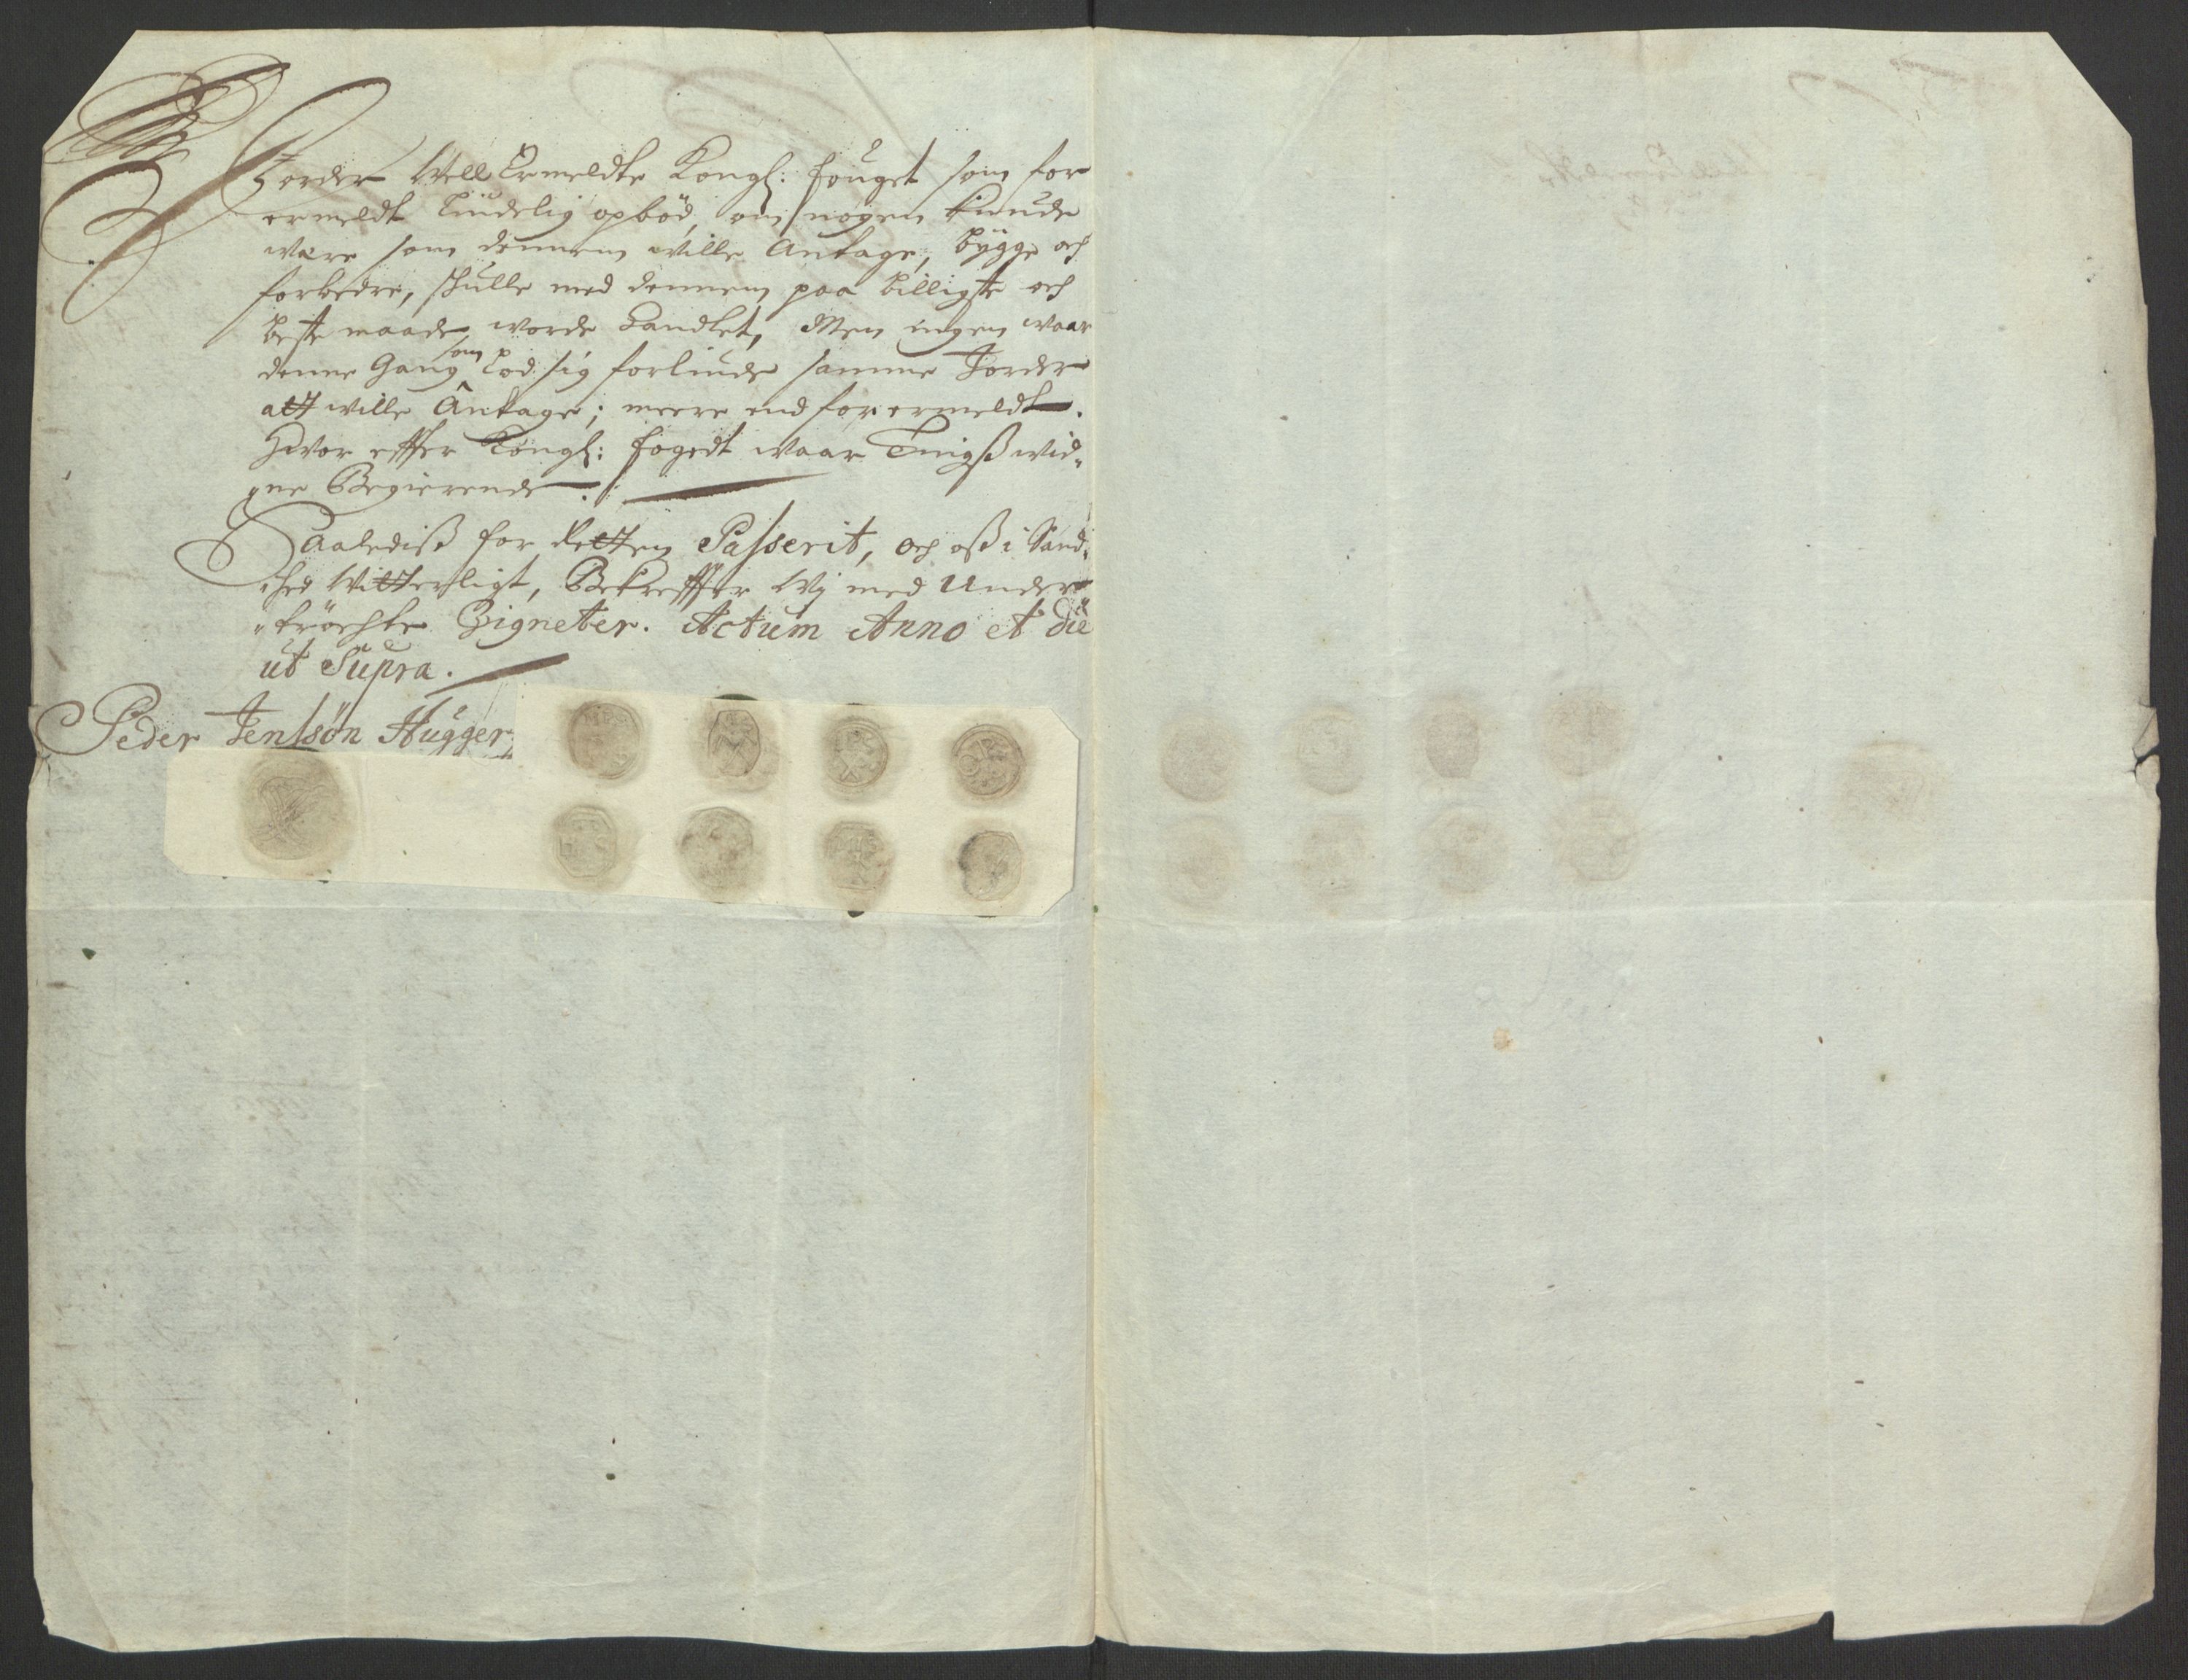 Jorder Well Ermeldte Kongl: fouget som for
ermeldt liudelig opbød, om nogen kunde
være som dennem wille Antage, bygge och
forbedre, skulle med dennem paa billigste och
beste maade worde handlet, Men ingen waar
denne Gang som lod sig forliude samme Jorder
att wille Antage; meere end for ermeldt.
Hvor effter Kongl: fogedt waar Tingsß wid„
„ne Begierende ./.
Saaledisß for Retten Passerit, och osß i Sand„
„hed Witterligt, Bekreffter Wj med Under„
„tröchte Zigneter. Actum Anno et die
ut Supra.
Peder Jenssøn Hugger